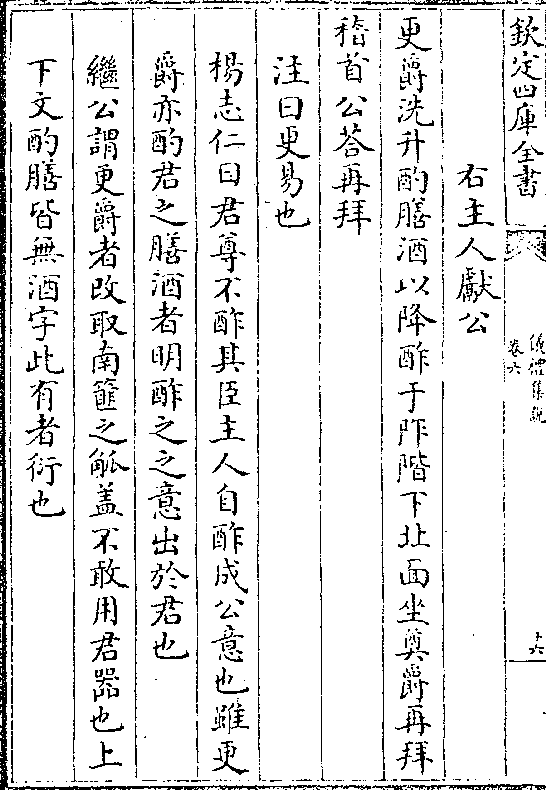 欽定四庫全書
儀禮集說
卷六
十六
右主人獻公
更爵洗升酌膳酒以降酢于阼階下北面坐奠爵再拜
稽首公荅再拜
注曰更易也
楊志仁曰君尊不酢其臣主人自酢成公意也雖更
爵亦酌君之膳酒者明酢之之意出於君也
繼公謂更爵者改取南篚之觚盖不敢用君器也上
下文酌膳皆無酒字此有者衍也